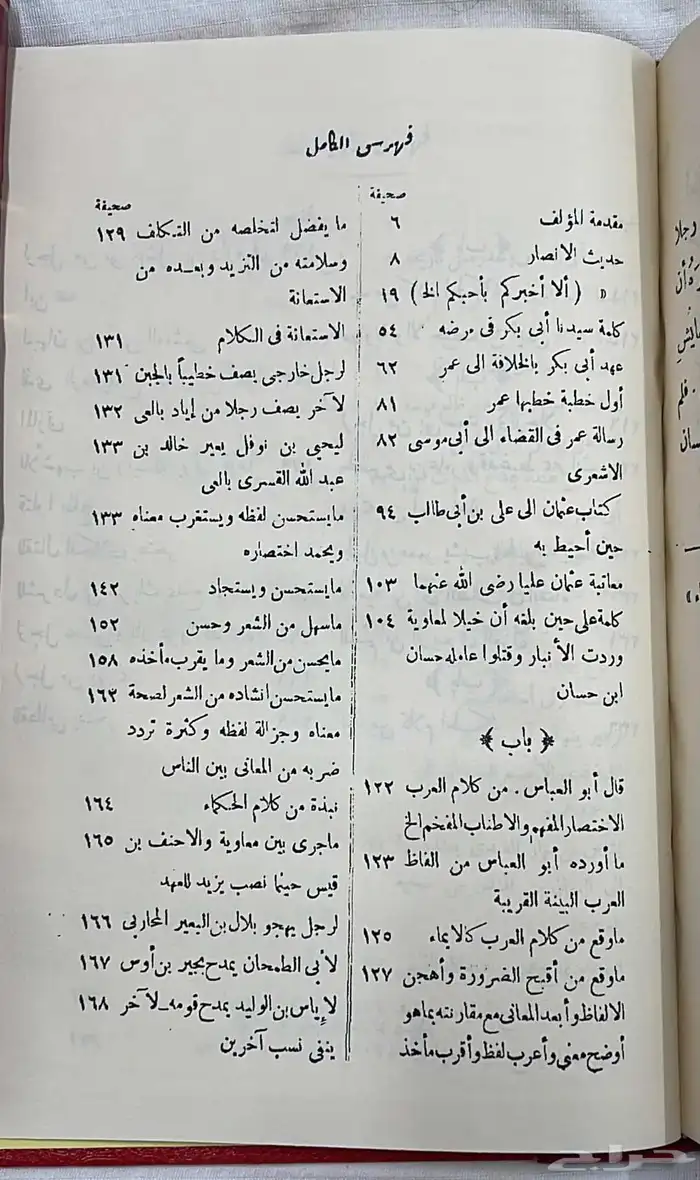 فهرس الكامل
صحيفة
مقدمة المؤلف ٦
حديث الانصار ٨
« (ألا أخبركم بأحبكم الخ) ١٩
كلمة سيدنا أبى بكر فى مرضه ٥٤
عهد أبى بكر بالخلافة الى عمر ٦٢
أول خطبة خطبها عمر ٨١
رسالة عمر فى القضاء الى أبى موسى ٨٢
الاشعرى
كتاب عثمان الى على بن أبى طالب ٩٤
حين أحيط به
معاتبة عثمان عليا رضى الله عنهما ١٠٣
كلمة على حين بلغه أن خيلا لمعاوية ١٠٤
وردت الأنبار وقتلوا عامله حسان
ابن حسان
﴿ باب ﴾
قال أبو العباس. من كلام العرب ١٢٢
الاختصار المفهم والاطناب المفخم الخ
ما أورده أبو العباس من الفاظ ١٢٣
العرب البينة القريبة
ماوقع من كلام العرب كالايماء ١٢٥
ماوقع من أقبح الضرورة وأهجن ١٢٧
الالفاظ وأبعد المعانى مع مقارنته بماهو
أوضح معنى وأعرب لفظ وأقرب مأخذ
صحيفة
ما يفضل لتخلصه من التكلف ١٢٩
وسلامته من التزيد وبعده من
الاستعانة
الاستعانة فى الكلام ١٣١
لرجل خارجى يصف خطيباً بالجبن ١٣١
لآخر يصف رجلا من إياد بالعى ١٣٢
ليحيى بن نوفل يعير خالد بن ١٣٣
عبد الله القسرى بالعى
مايستحسن لفظه ويستغرب معناه ١٣٣
ويحمد اختصاره
مايستحسن ويستجاد ١٤٢
ماسهل من الشعر وحسن ١٥٢
مايحسن من الشعر وما يقرب مأخذه ١٥٨
مايستحسن انشاده من الشعر لصحة ١٦٣
معناه وجزالة لفظه وكثرة تردد
ضربه من المعانى بين الناس
نبذة من كلام الحكماء ١٦٤
ماجرى بين معاوية والاحنف بن ١٦٥
قيس حينما نصب يزيد للعهد
لرجل يهجو بلال بن البعير المحاربى ١٦٦
لأبى الطمحان يمدح بجير بن أوس ١٦٧
لإياس بن الوليد يمدح قومه ـ لآخر ١٦٨
ينفى نسب آخرين
حراج